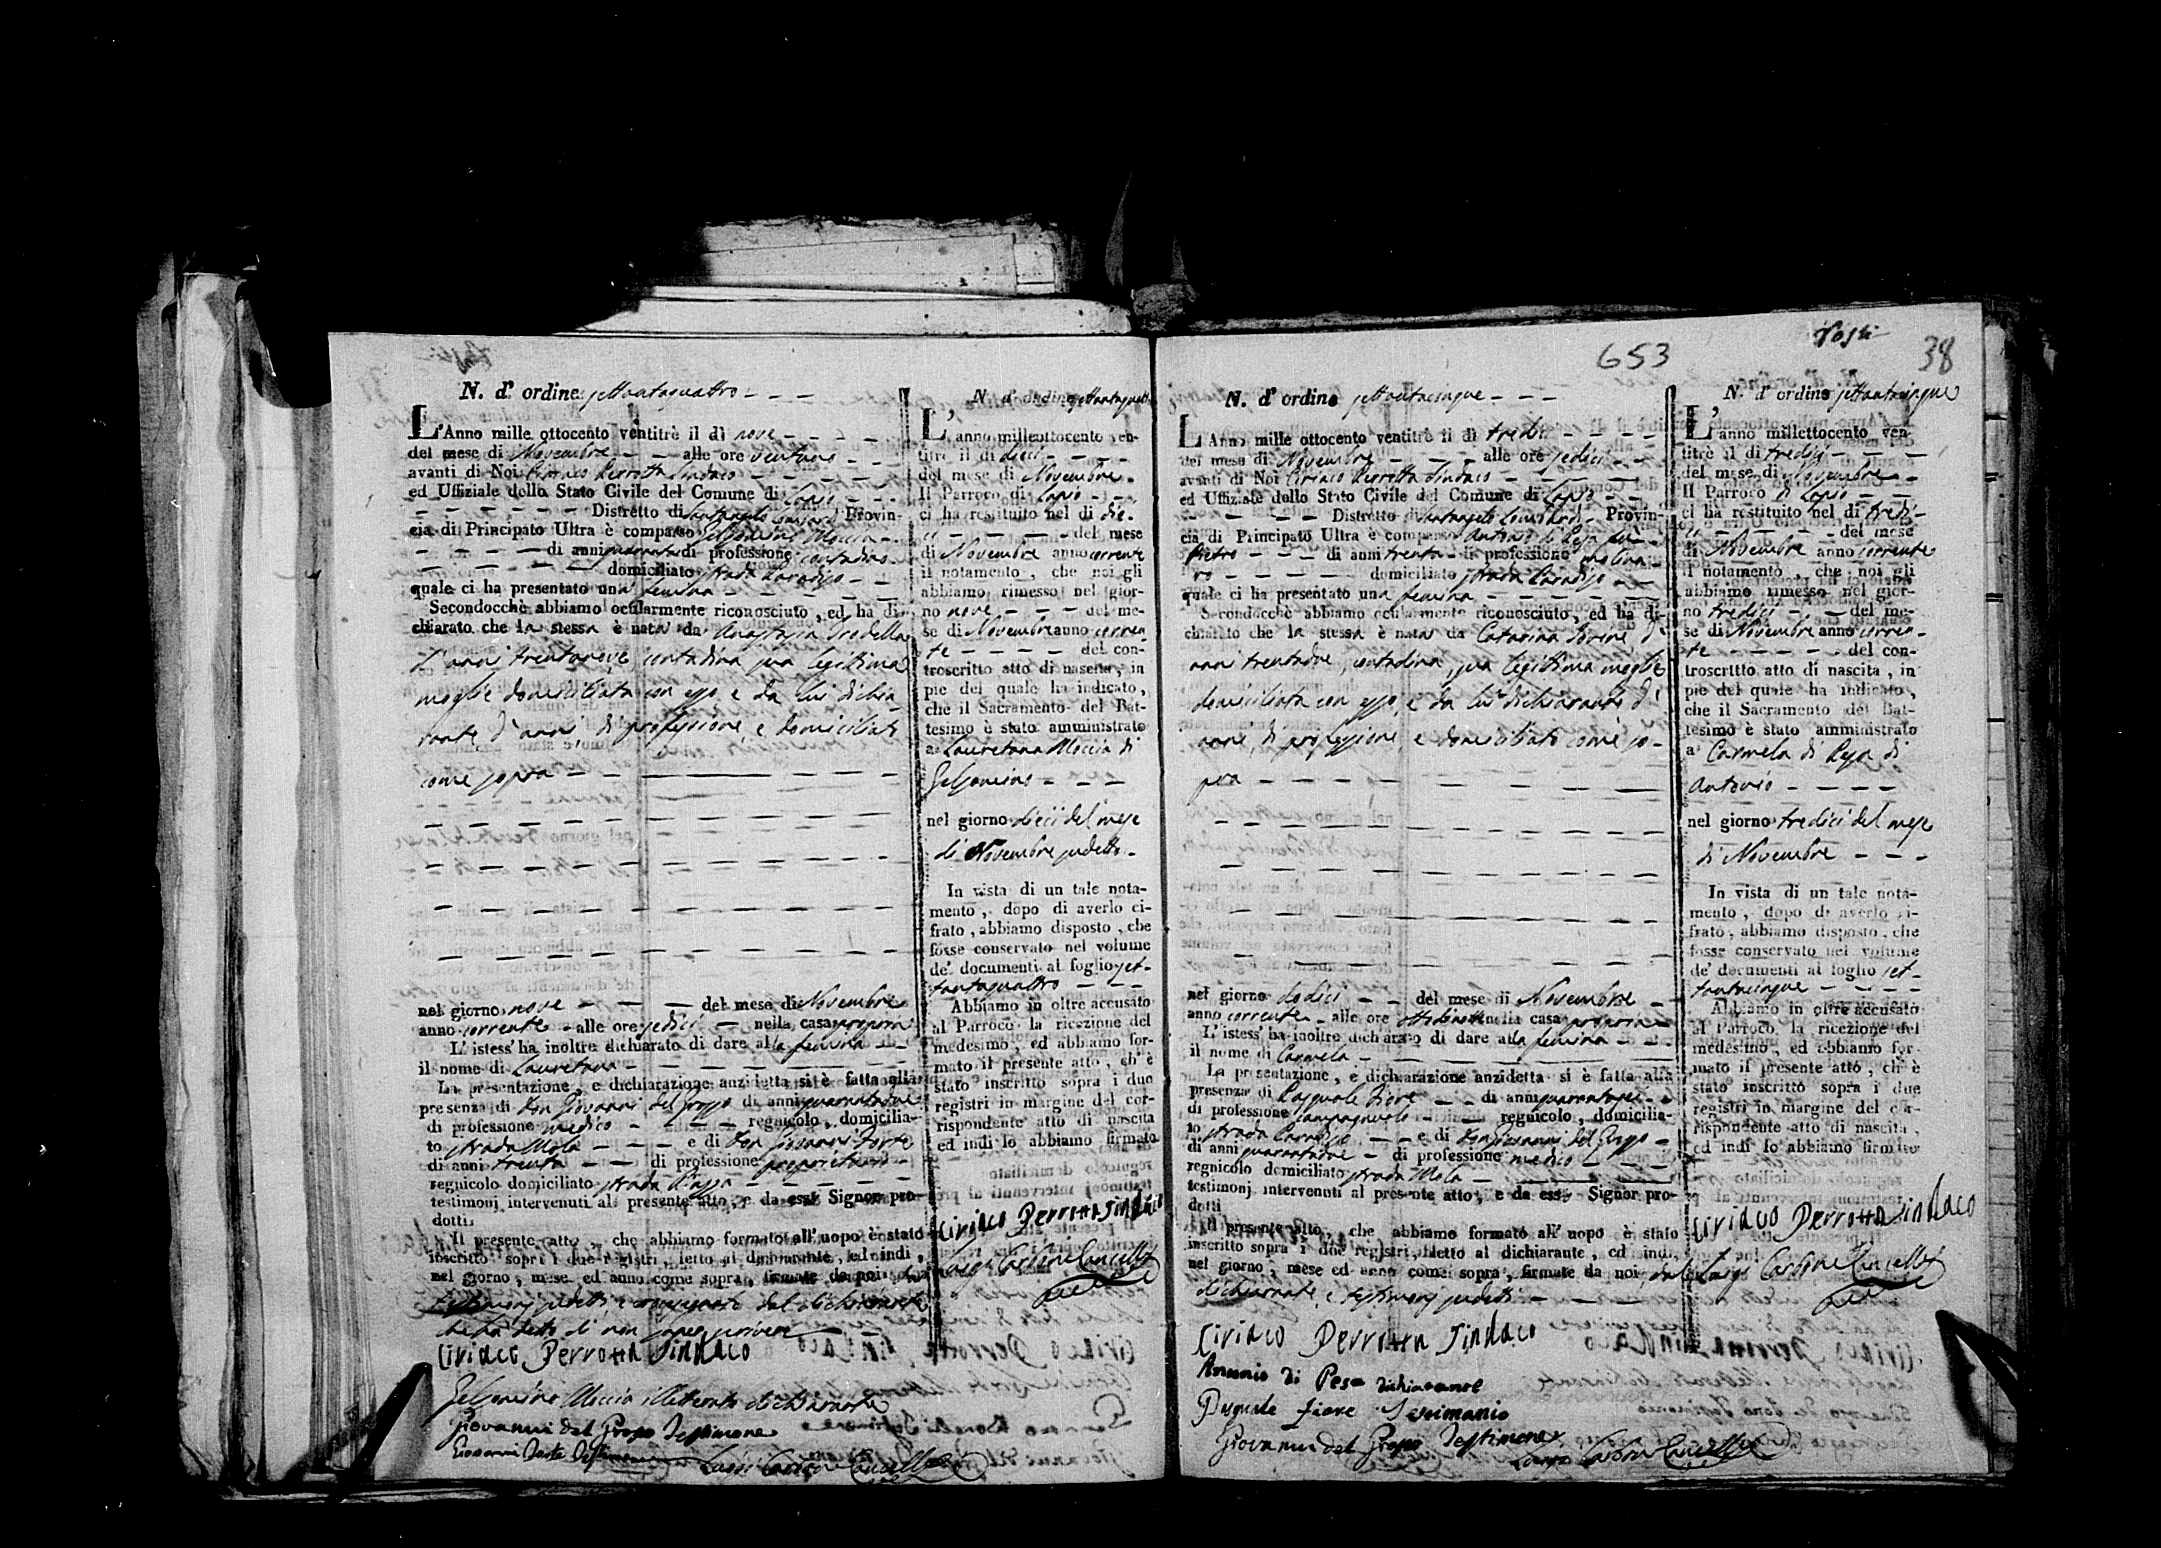 N. d' ordine settantaquattro
L'Anno mille ottocento ventitrè il dì nove
del mese di Novembre alle ore ventuno
avanti di Noi Ciriaco Perrotta Sindaco
ed Uffiziale dello Stato Civile del Comune di Lapio
Distretto di Santangelo Lombardi Provin-
cia di Principato Ultra è comparso Gelsomino Moccia
di anni quaranta di professione contadino
domiciliato strada Paradiso
quale ci ha presentato una femina
Secondocchè abbiamo ocularmente riconosciuto, ed ha di-
chiarato che la stessa è nata da Anastasia Iredella
d'anni trentanove contadina sua legittima
moglie domiciliata con esso e da lui dichia-
rante d'anni di professione, e domiciliato
come sopra
nel giorno nove del mese di Novembre
anno corrente alle ore sedici nella casa propria
L'istess' ha inoltre dichiarato di dare alla femina
il nome di Lauretana
La presentazione, e dichiarazione anzidetta si è fatta alla
presenza di Don Giovanni del Grosso di anni quarantadue
di professione medico regnicolo, domicilia-
to strada Mola e di Don Giovanni Forte
di anni trenta di professione proprietario
regnicolo domiciliato strada Piazza
testimonj intervenuti al presente atto, e da esso Signor pro-
dotti.
Il presente atto, che abbiamo formato all' uopo è stato
inscritto sopra i due registri, letto al dichiarante, ed indi,
nel giorno, mese ed anno come sopra, firmato da noi, da
testimonj sudetti, e crocesegnato dal dichiarante
che ha detto di non saper scrivere
Ciriaco Perrotta Sindaco
Gelsomino Moccia illetterato dichiarante
Giovanni del Grosso Testimone
Giovanni Forte Testimone
Luigi Carbone Cancelliere
N. d' ordine settantaquattro
L' anno milleottocento ven-
titrè il dì dieci
del mese di Novembre
Il Parroco di Lapio
ci ha restituito nel dì die-
ci del mese
di Novembre anno corrente
il notamento, che noi gli
abbiamo rimesso nel gior-
no nove del me-
se di Novembre anno corren
te del con-
troscritto atto di nascita, in
pie del quale ha indicato,
che il Sacramento del Bat-
tesimo è stato amministrato
a Lauretana Moccia di
Gelsomino
nel giorno dieci del mese
di Novembre sudetto
In vista di un tale nota-
mento, dopo di averlo ci-
frato, abbiamo disposto, che
fosse conservato nel volume
de' documenti al foglio set-
tantaquattro
Abbiamo in oltre accusato
al Parroco la ricezione del
medesimo, ed abbiamo for-
mato il presente atto, ch' è
stato inscritto sopra i due
registri in margine del cor-
rispondente atto di nascita
ed indi lo abbiamo firmato
Ciriaco Perrotta Sindaco
Luigi Carbone Cancelliere
653
38
N. d' ordine settantacinque
L'Anno mille ottocento ventitrè il dì tredici
del mese di Novembre alle ore sedici
avanti di Noi Ciriaco Perrotta Sindaco
ed Uffiziale dello Stato Civile del Comune di Lapio
Distretto di Santangelo Lombardi Provin-
cia di Principato Ultra è comparso Antonio di Pesa fu
Pietro di anni trenta di professione molina-
ro domiciliato strada Paradiso
quale ci ha presentato una femina
Secondocchè abbiamo ocularmente riconosciuto, ed ha di-
chiarato che la stessa è nata da Catarina Fiore d'
anni trentadue, contadina, sua legittima moglie
domiciliata con esso, e da lui dichiarante d'
anni, di professione, e domiciliato come so-
pra
nel giorno dodici del mese di Novembre
anno corrente alle ore nella casa propria
L'istess' ha inoltre dichiarato di dare alla femina
il nome di Carmela
La presentazione, e dichiarazione anzidetta si è fatta alla
presenza di Pasquale Fiore di anni quarantasei
di professione campagnuolo regnicolo, domicilia-
to strada Paradiso e di Don Giovanni del Grosso
di anni quarantadue di professione medico
regnicolo domiciliato strada Mola
testimonj intervenuti al presente atto, e da esso Signor pro-
dotti
Il presente atto, che abbiamo formato all' uopo è stato
inscritto sopra i due registri, letto al dichiarante, ed indi,
nel giorno, mese ed anno come sopra, firmato da noi dal
dichiarante, e testimonj sudetti
Ciriaco Perrotta Sindaco
Antonio di Pesa dichiarante
Pasquale fiore Testimonio
Giovanni del Grosso Testimone
Luigi Carbone Cancelliere
N. d' ordine settantacinque
L' anno millettocento ven-
titrè il dì tredici
del mese di Novembre
Il Parroco di Lapio
ci ha restituito nel dì tredi-
ci del mese
di Novembre anno corrente
il notamento, che noi gli
abbiamo rimesso nel gior-
no tredici del me-
se di Novembre anno corren-
te del con-
troscritto atto di nascita, in
pie del quale ha indicato,
che il Sacramento del Bat-
tesimo è stato amministrato
a Carmela di Pesa di
Antonio
nel giorno tredici del mese
di Novembre
In vista di un tale nota-
mento, dopo di averlo ci-
frato, abbiamo disposto, che
fosse conservato nel volume
de' documenti al foglio set-
tantacinque
Abbiamo in oltre accusato
al Parroco la ricezione del
medesimo, ed abbiamo for-
mato il presente atto, ch' è
stato inscritto sopra i due
registri in margine del cor-
rispondente atto di nascita,
ed indi lo abbiamo firmato
Ciriaco Perrotta Sindaco
Luigi Carbone Cancelliere